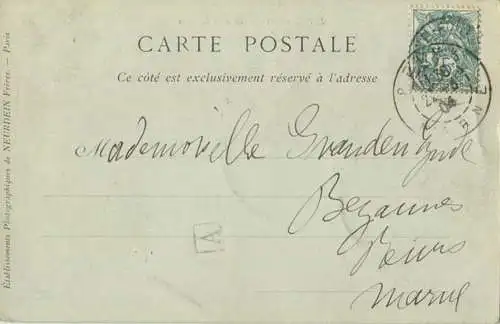 CARTE POSTALE
Ce côté est exclusivement réservé à l'adresse
Mademoiselle
Bezannes
Reims
Marne
A
Établissements Photographiques de NEURDEIN Frères. — Paris